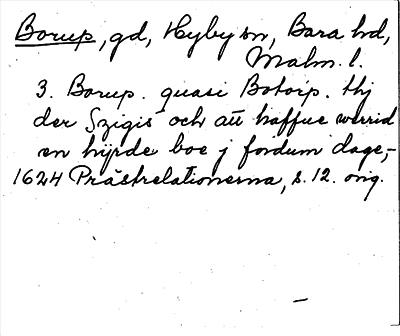 Borup, gd, Hyby sn, Bara hd,
Malm. l.
3. Borup. quasi Botorp. thj
der Szigis och att haffue werrid
en hyrde boe j fordum dage,-
1624 Prästrelationerna, s. 12. orig.